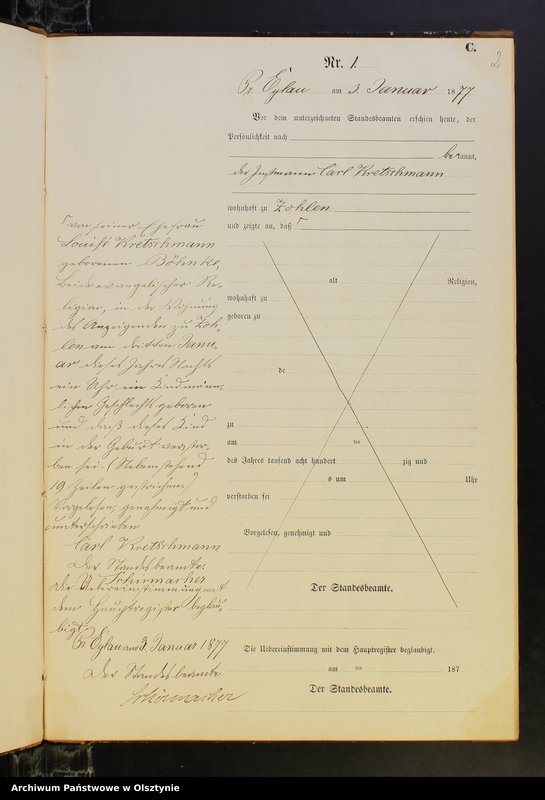 C.
2
Nr. 1
Pr. Eylau am 3. Januar 1877
Vor dem unterzeichneten Standesbeamten erschien heute, der
Persönlichkeit nach
bekannt,
der Instmann Carl Kretschmann
wohnhaft zu Zohlen
und zeigte an, daß
von seiner Ehefrau
Louise Kretschmann
geborenen Böhnke,
beide evangelischer Re-
ligion, in der Wohnung
des Anzeigenden zu Zoh-
len am dritten Janu-
ar dieses Jahres Nachts
ein Uhr ein Kind männ-
lichen Geschlechts geboren
und daß dieses Kind
in der Geburt verstor-
ben sei. (Nebenstehend
19 Zeilen gestrichen)
Vorgelesen, genehmigt und
unterschrieben
Carl Kretschmann
Der Standesbeamte.
Schirmacher
Die Uebereinstimmung mit
dem Hauptregister beglau-
bigt
Pr. Eylau am 3. Januar 1877
Der Standesbeamte
Schirmacher
alt Religion,
wohnhaft zu
geboren zu
de
zu
am ten
des Jahres tausend acht hundert zig und
s um Uhr
verstorben sei
Vorgelesen, genehmigt und
Der Standesbeamte.
Die Uebereinstimmung mit dem Hauptregister beglaubigt.
am ten 187
Der Standesbeamte.
Archiwum Państwowe w Olsztynie